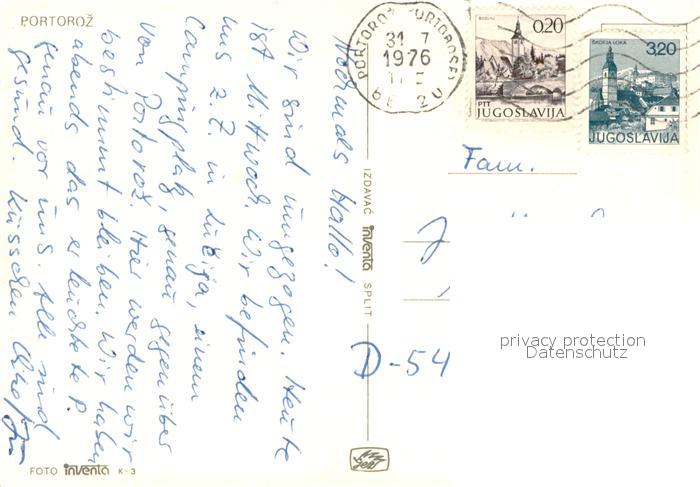 PORTOROŽ
Nochmals Hallo!
Wir sind umgezogen. Heute
ist Mittwoch. Wir befinden
uns z. Z. in Lučija, einem
Campingplatz, genau gegenüber
von Portorož. Hier werden wir
bestimmt bleiben. Wir haben
abends das erleuchtete P.
genau vor uns. Alle sind
gesund. Küsschen
FOTO inventa K-3
IZDAVAČ inventa SPLIT
PORTOROŽ PORTOROSE
31 7
1976
BLED
0,20
PTT
JUGOSLAVIJA
ŠKOFJA LOKA
3,20
JUGOSLAVIJA
Fam.
J
D-54
privacy protection
Datenschutz